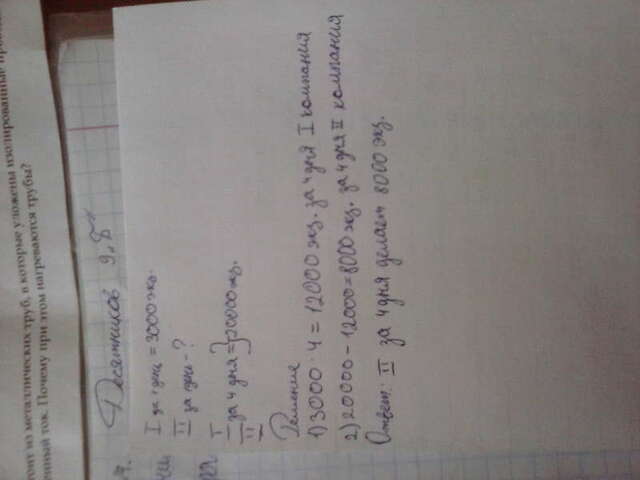 тоит из металлических труб, в которые уложены изолированные
нный ток. Почему при этом нагреваются трубы?
Десятников 9 "Б"
I за 1 дни = 3000 экз.
II за дни - ?
I
II за 4 дня = } 20000 экз.
Решение
1) 3000 · 4 = 12000 экз. за 4 дня I компания
2) 20000 - 12000 = 8000 экз. за 4 дня II компания
Ответ: II за 4 дня делает 8000 экз.